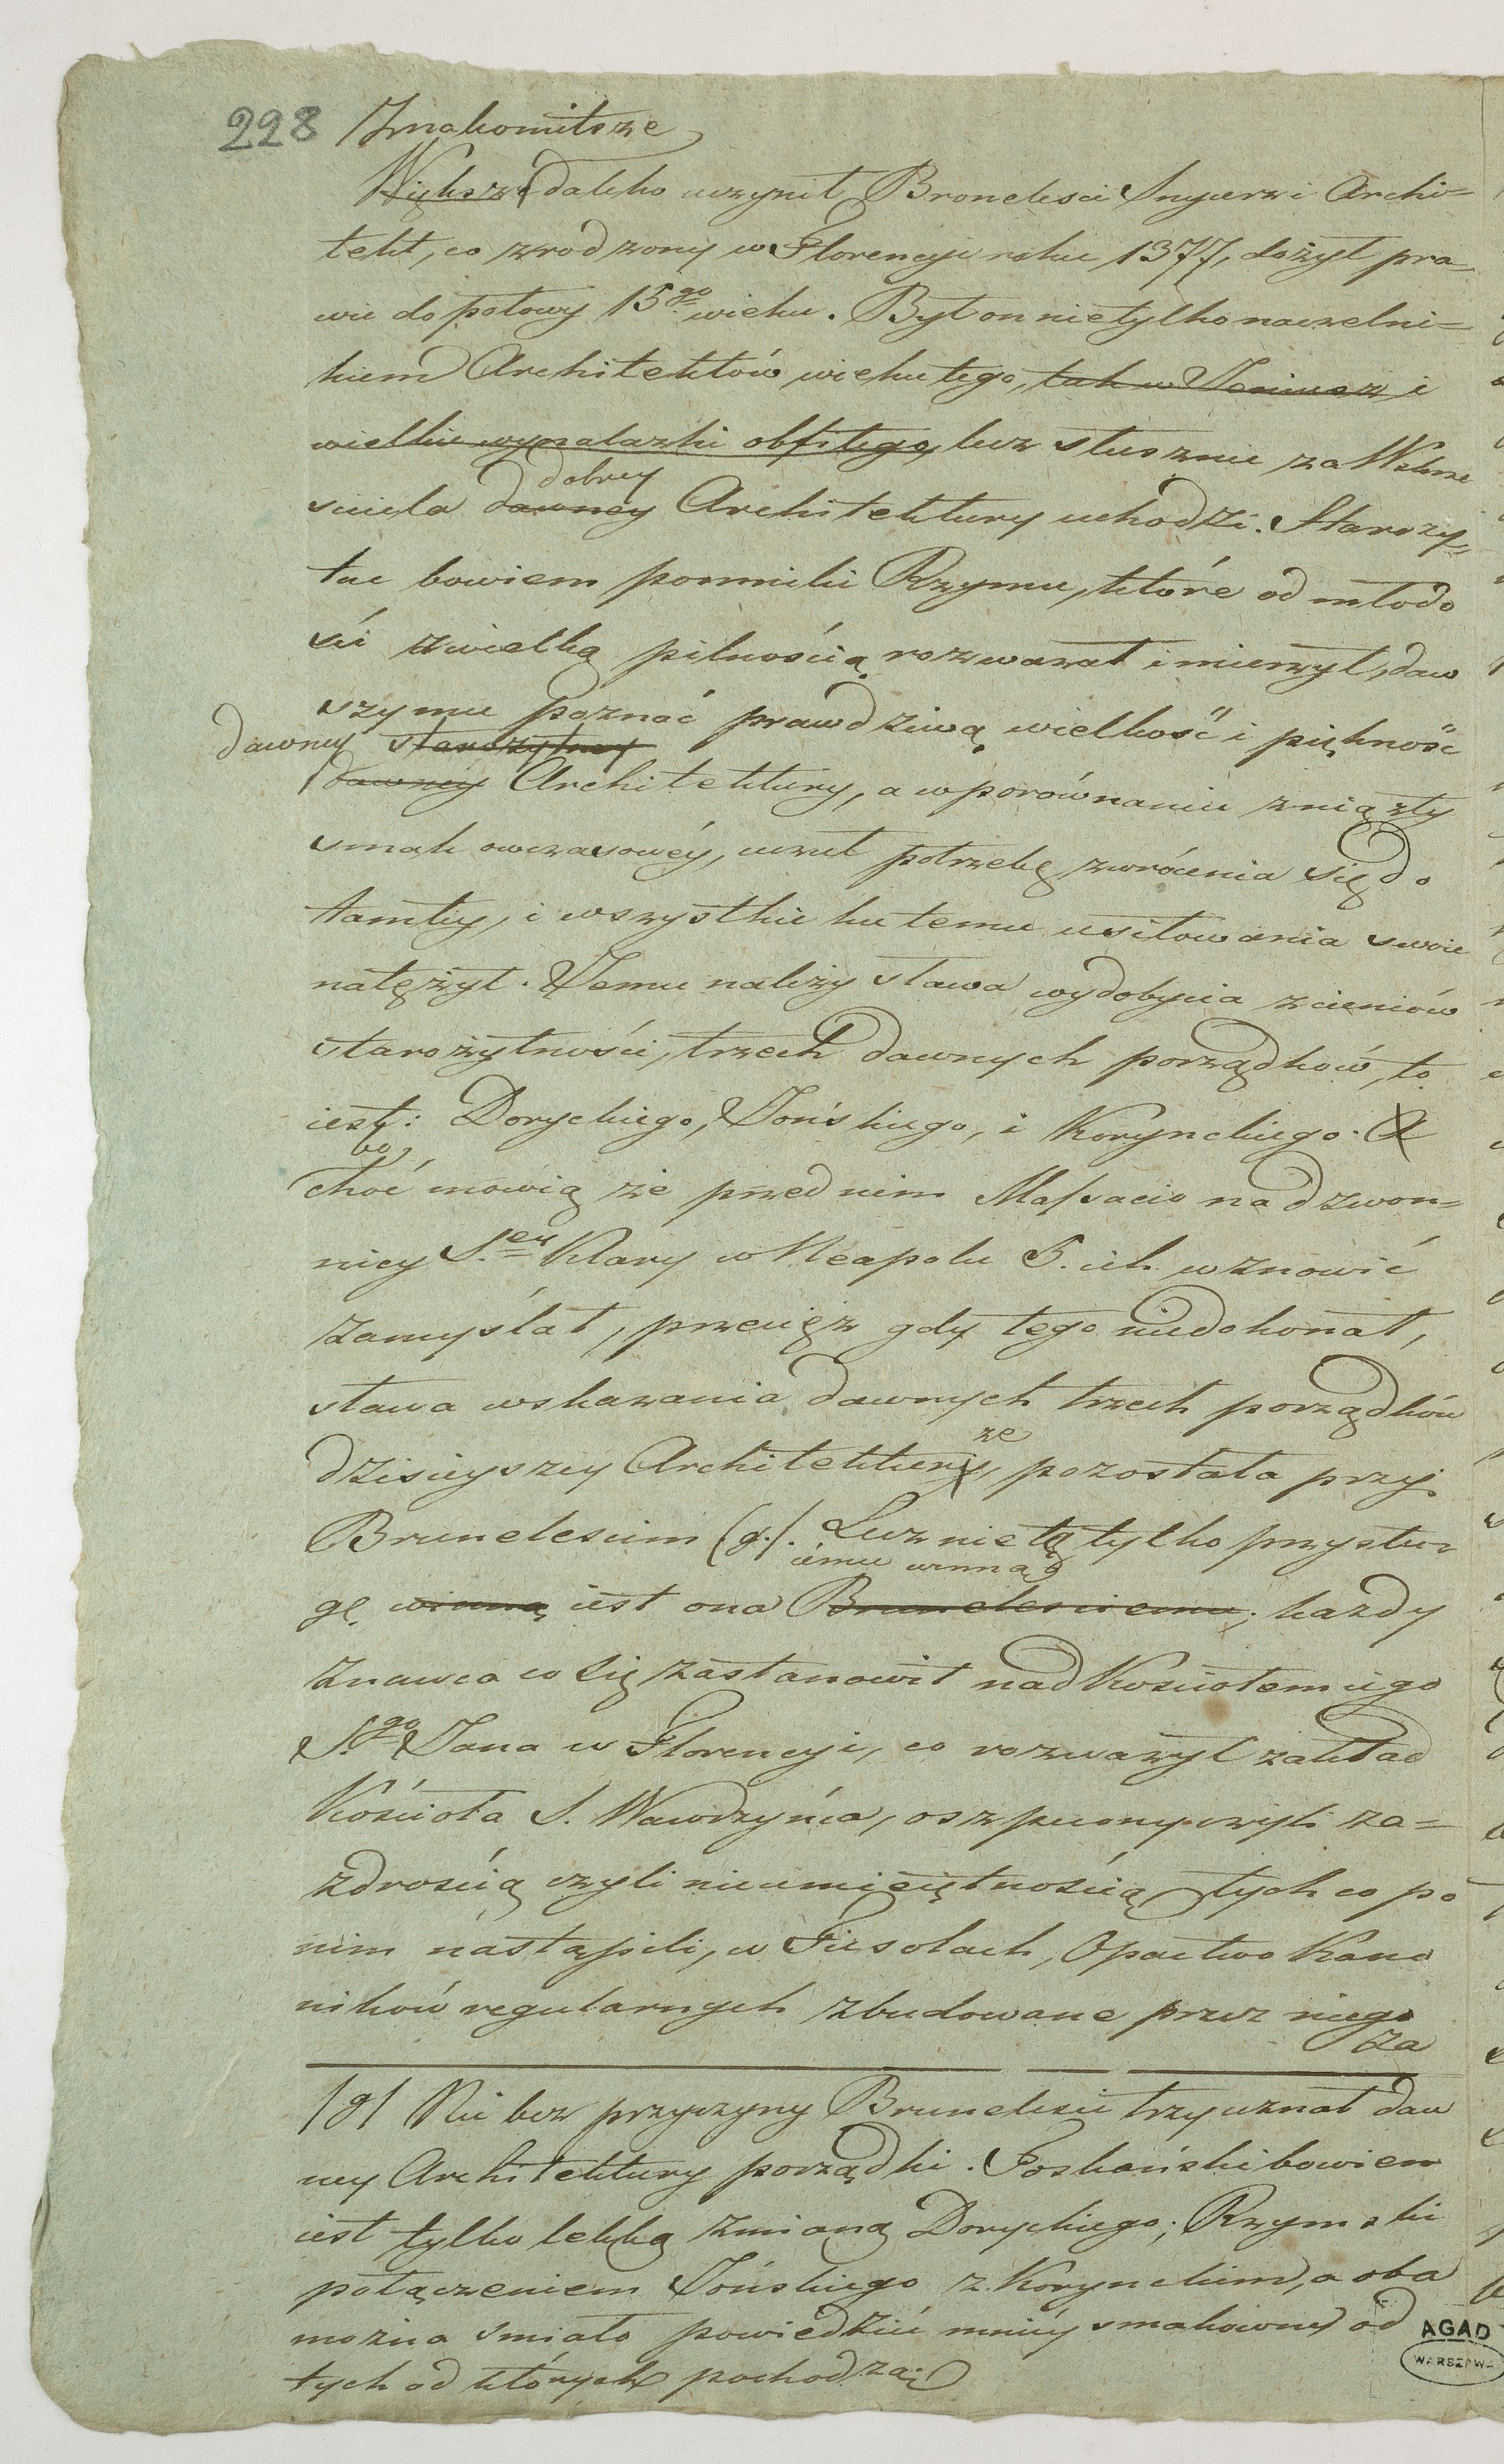 228 Znakomitsze
Większe daleko uczynił Bronelesci Snycerz i Archi=
tekt, co zrodzony w Florencyi roku 1377, dożył pra
wie do połowy 15go wieku. Był on nietylko naczelni=
kiem Architektów wieku tego, tak w Geniusz i
wielkie wynalazki obfitego, lecz słusznie za Wskrze
siciela dawney Architektury uchodzi. Starozy„
dobrey
tne bowiem pomniki Rzymu, które od młodo
ści z wielką pilnością rozwazał i mierzył, daw
szy mu poznać prawdziwą wielkość i piękność
dawney starożytney
dawney Architektury, a w porównaniu z nią zły
smak owczasowéy, uczuł potrzebę zwrócenia się do
tamtey, i wszystkie ku temu usiłowania swoie
natężył. Jemu należy sława wydobycia z cieniów
starożytności, trzech dawnych porządków, to
iest: Doryckiego, Jońskiego, i Korynckiego. A
bo
choć mówią że przed nim Massacio na dzwon=
nicy S.ey Klary w Neapolu 5. ich wznowić
zamyślał, przecięż gdy tego niedokonał,
sława wskazania dawnych trzech porządków
dzisieyszey Architekturze, pozostała przy
Brunelescim (g.). Lecz nie tą tylko przysłu=
iému winna
gę winna iest ona Brunelesciemu; kazdy
znawca co się zastanowił nad Kościołem iego
S.go Jana w Florencyi, co rozważył zakład
Kościoła S. Wawrzyńca, oszpecony czyli za=
zdrością czyli nieumieiętnością tych co po
nim nastąpili, w Fiesolach, Opactwo Kano
ników regularnych zbudowane przez niego
za
/g/ Nie bez przyczyny Brunelesci trzy uznał daw
ney Architektury porządki. Toskański bowiem
iest tylko lekką zmianą Doryckiego; Rzymski
połączeniem Jońskiego z Korynckim, a oba
można smiało powiedzieć mniéy smakowne od
tych od których pochodzą.
AGAD
WARSZAWA